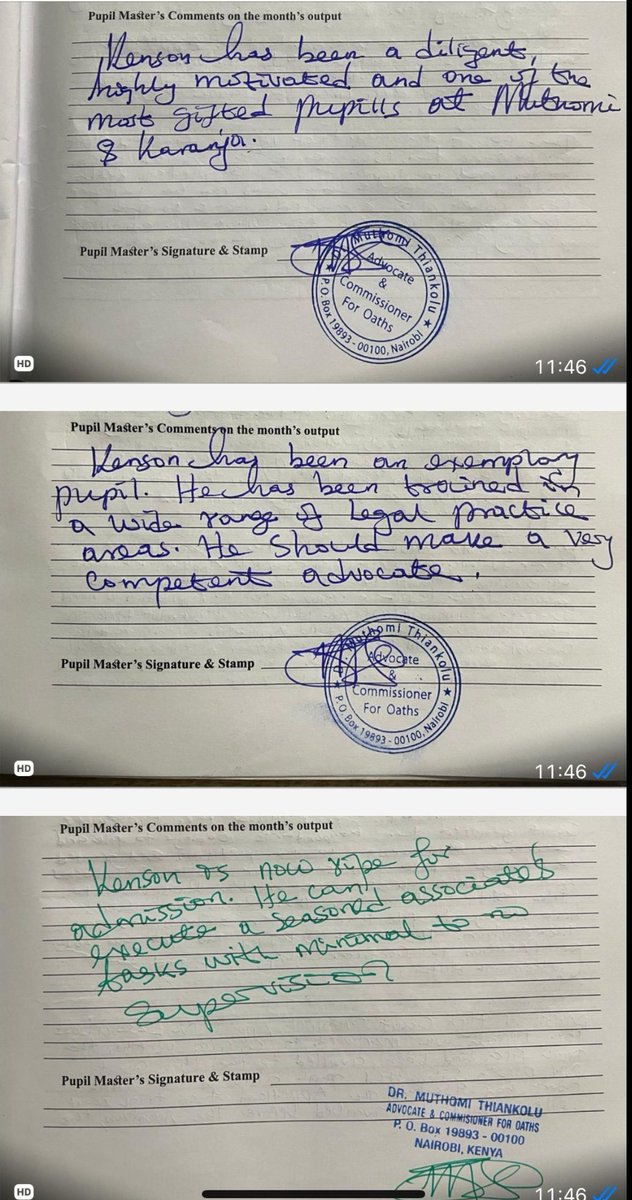 Pupil Master's Comments on the month's output
Kenson has been a diligent,
highly motivated and one of the
most gifted pupills at Muthomi
& Karanja.
Pupil Master's Signature & Stamp
Dr. Muthomi Thiankolu
Advocate
&
Commissioner
For Oaths
★ P.O. Box 19893 - 00100, Nairobi ★
HD
11:46
Pupil Master's Comments on the month's output
Kenson has been an exemplary
pupil. He has been trained in
a wide range of legal practice
areas. He should make a very
competent advocate.
Pupil Master's Signature & Stamp
Muthomi Thiankolu
Advocate
&
Commissioner
For Oaths
★ P.O. Box 19893 - 00100, Nairobi ★
HD
11:46
Pupil Master's Comments on the month's output
Kenson is now ripe for
admission. He can
execute a seasoned associate's
tasks with minimal to no
supervision
Pupil Master's Signature & Stamp
DR. MUTHOMI THIANKOLU
ADVOCATE & COMMISIONER FOR OATHS
P. O. Box 19893 - 00100
NAIROBI, KENYA
HD
11:46